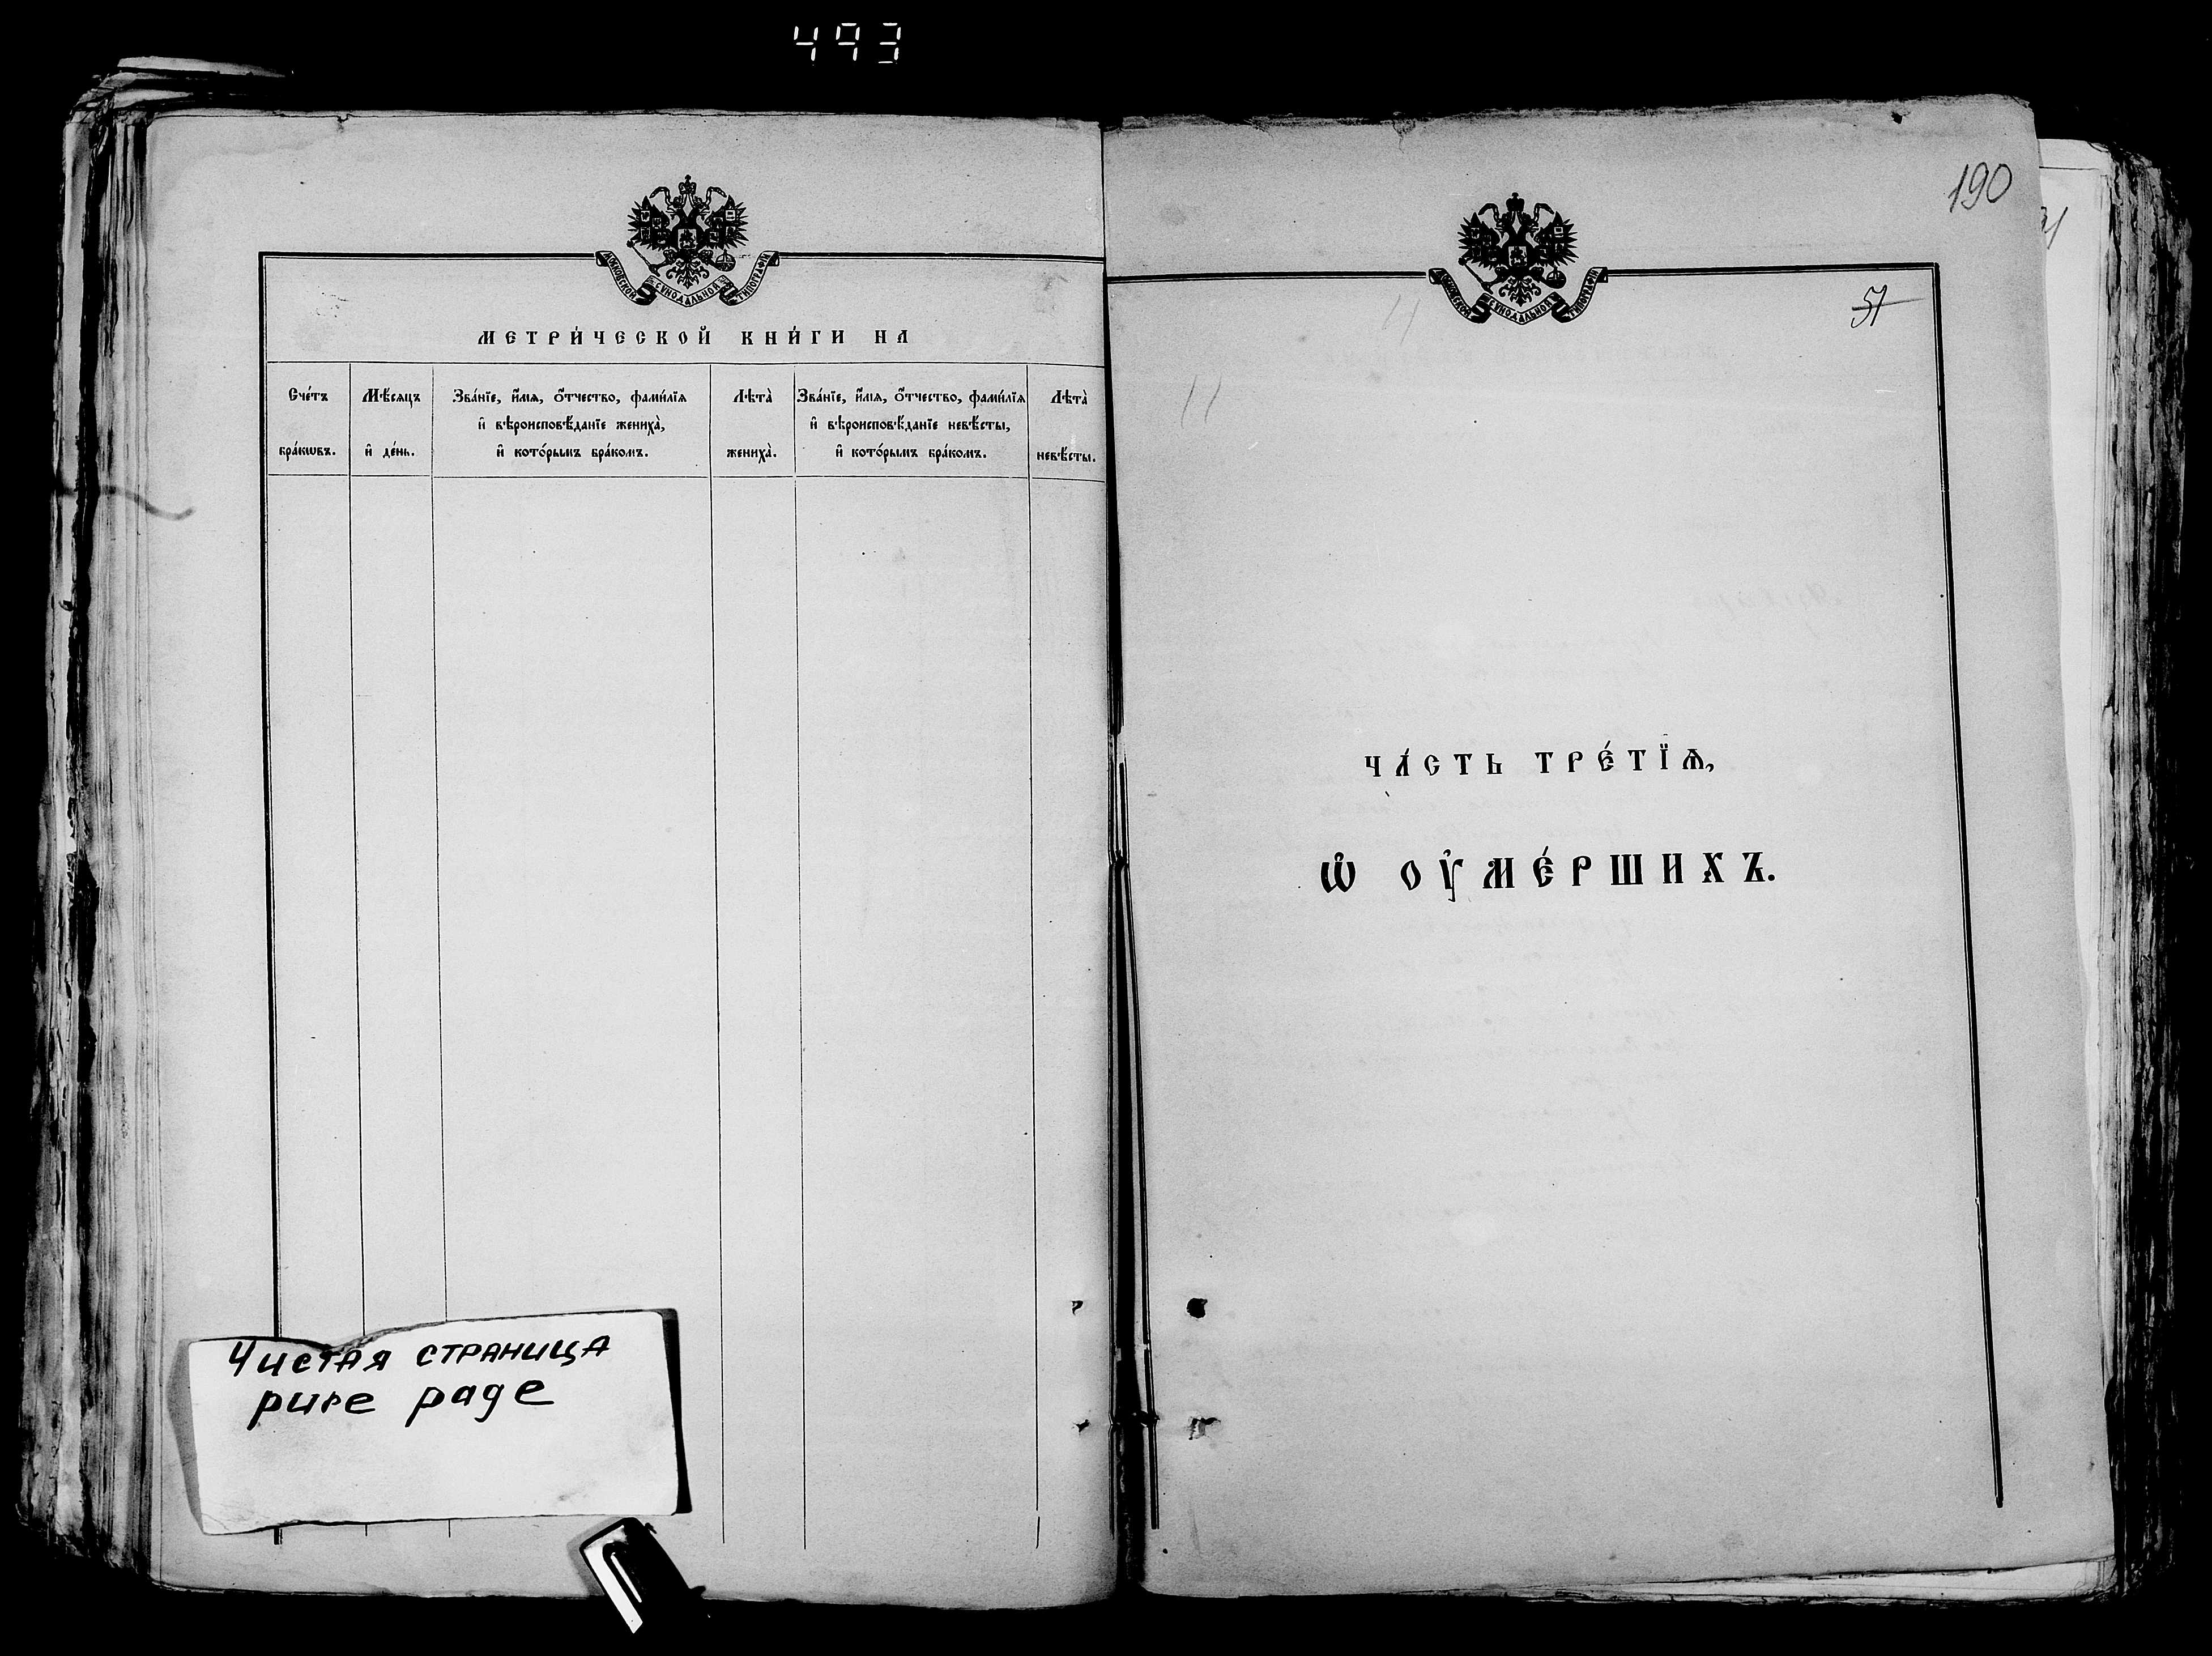 493
МОСКОВСКОЙ СѴНОДАЛЬНОЙ ТИПОГРАФІИ
МЕТРИ́ЧЕСКОЙ КНИ́ГИ НА
Сче́тъ бра́кѡвъ.
Мѣ́сяцъ и҆ де́нь.
Зва́нїе, и҆́мѧ, ѻ҆́тчество, фами́лїѧ
и҆ вѣроисповѣ́данїе жениха̀,
и҆ кото́рымъ бра́комъ.
Лѣта̀ жениха̀.
Зва́нїе, и҆́мѧ, ѻ҆́тчество, фами́лїѧ
и҆ вѣроисповѣ́данїе невѣ́сты,
и҆ кото́рымъ бра́комъ.
Лѣта̀ невѣ́сты.
Чистая страница
pure page
190
МОСКОВСКОЙ СѴНОДАЛЬНОЙ ТИПОГРАФІИ
51
ЧА́СТЬ ТРЕ́ТЇѦ,
Ѡ҆ ОУ҆МЕ́РШИХЪ.